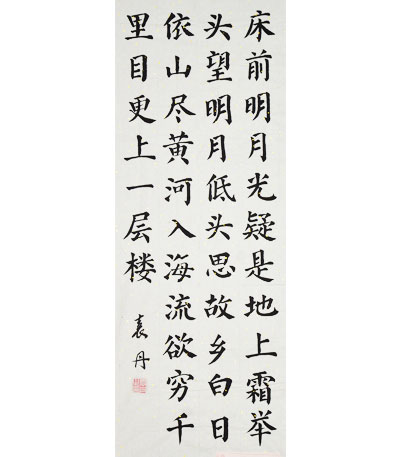 床前明月光疑是地上霜举
头望明月低头思故乡白日
依山尽黄河入海流欲穷千
里目更上一层楼
袁丹